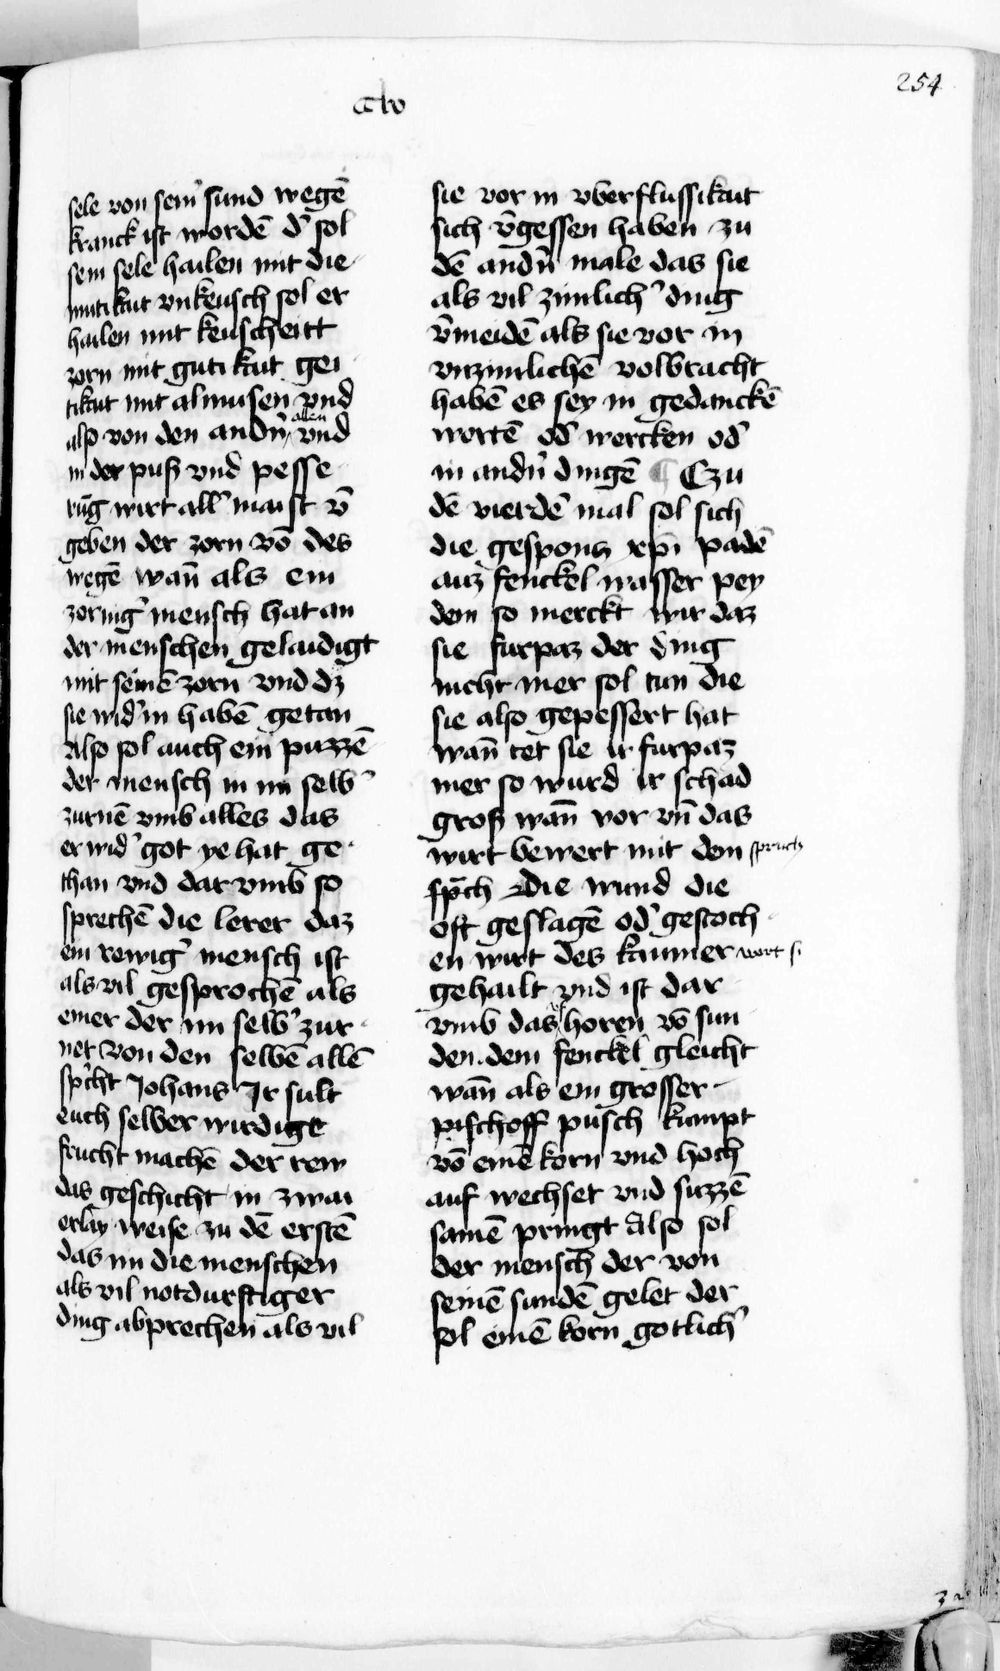 254
sele von sein' sund wegē
kranck ist wordē d' sol
sein sele hailen mit die
mutikait vnkeusch sol er
hailen mit keuscheitt
zorn mit gutikait gei
tikait mit almusen vnd
also von den andn̄ allen vnd
in der puß vnd pesse
rūg wirt all' maist v̄
geben der zorn vō des
wegē wan̄ als ein
zornig' mensch hat an
der menschen gelaidigt
mit seinē zorn vnd dz
sie wid' in habē getan
Also sol auch ein puzzē
der mensch in im selb'
zurnē vmb alles das
er wid' got ye hat ge
than vnd dar vmb so
sprechē die lerer daz
ein rewig' mensch ist
als vil gesprochē als
einer der im selb' zur
net von den selbē allē
sp'cht Johans Ir sult
euch selber wirdige
frucht machē der rew
das geschicht in zwai
erlay weise zu dē erstē
das im die menschen
als vil notdurftiger
ding abprechen als vil
sie vor in vberflussikait
sich v̄gessen haben zu
dē andn̄ male das sie
als vil zimlich' ding
v̄meidē als sie vor in
vnzimlichē volbracht
habē es sey in gedanckē
wortē od' wercken od'
in andn̄ dingē Czu
dē vierdē mal sol sich
die gesponz xp̄i padē
auz fenckel wasser pey
dem so merckt wir daz
sie furpaz der ding
nicht mer sol tun die
sie also gepessert hat
wan̄ tet sie ir furpaz
mer so wurd ir schad
groß wan̄ vor vn̄ das
wirt bewert mit dem spruch
sp̄ch Die wund die
oft geslagē od' gestoch
en wirt des kaumer wort
gehailt vnd ist dar
vmb das horen vō sun
den dem fenckel gleicht
wan̄ als ein grosser
pischoff pusch kumpt
vō einē korn vnd hoch
auf wechset vnd suzzē
samē pringt Also sol
der mensch der von
seinē sundē gelet der
sol einē korn gotlich'